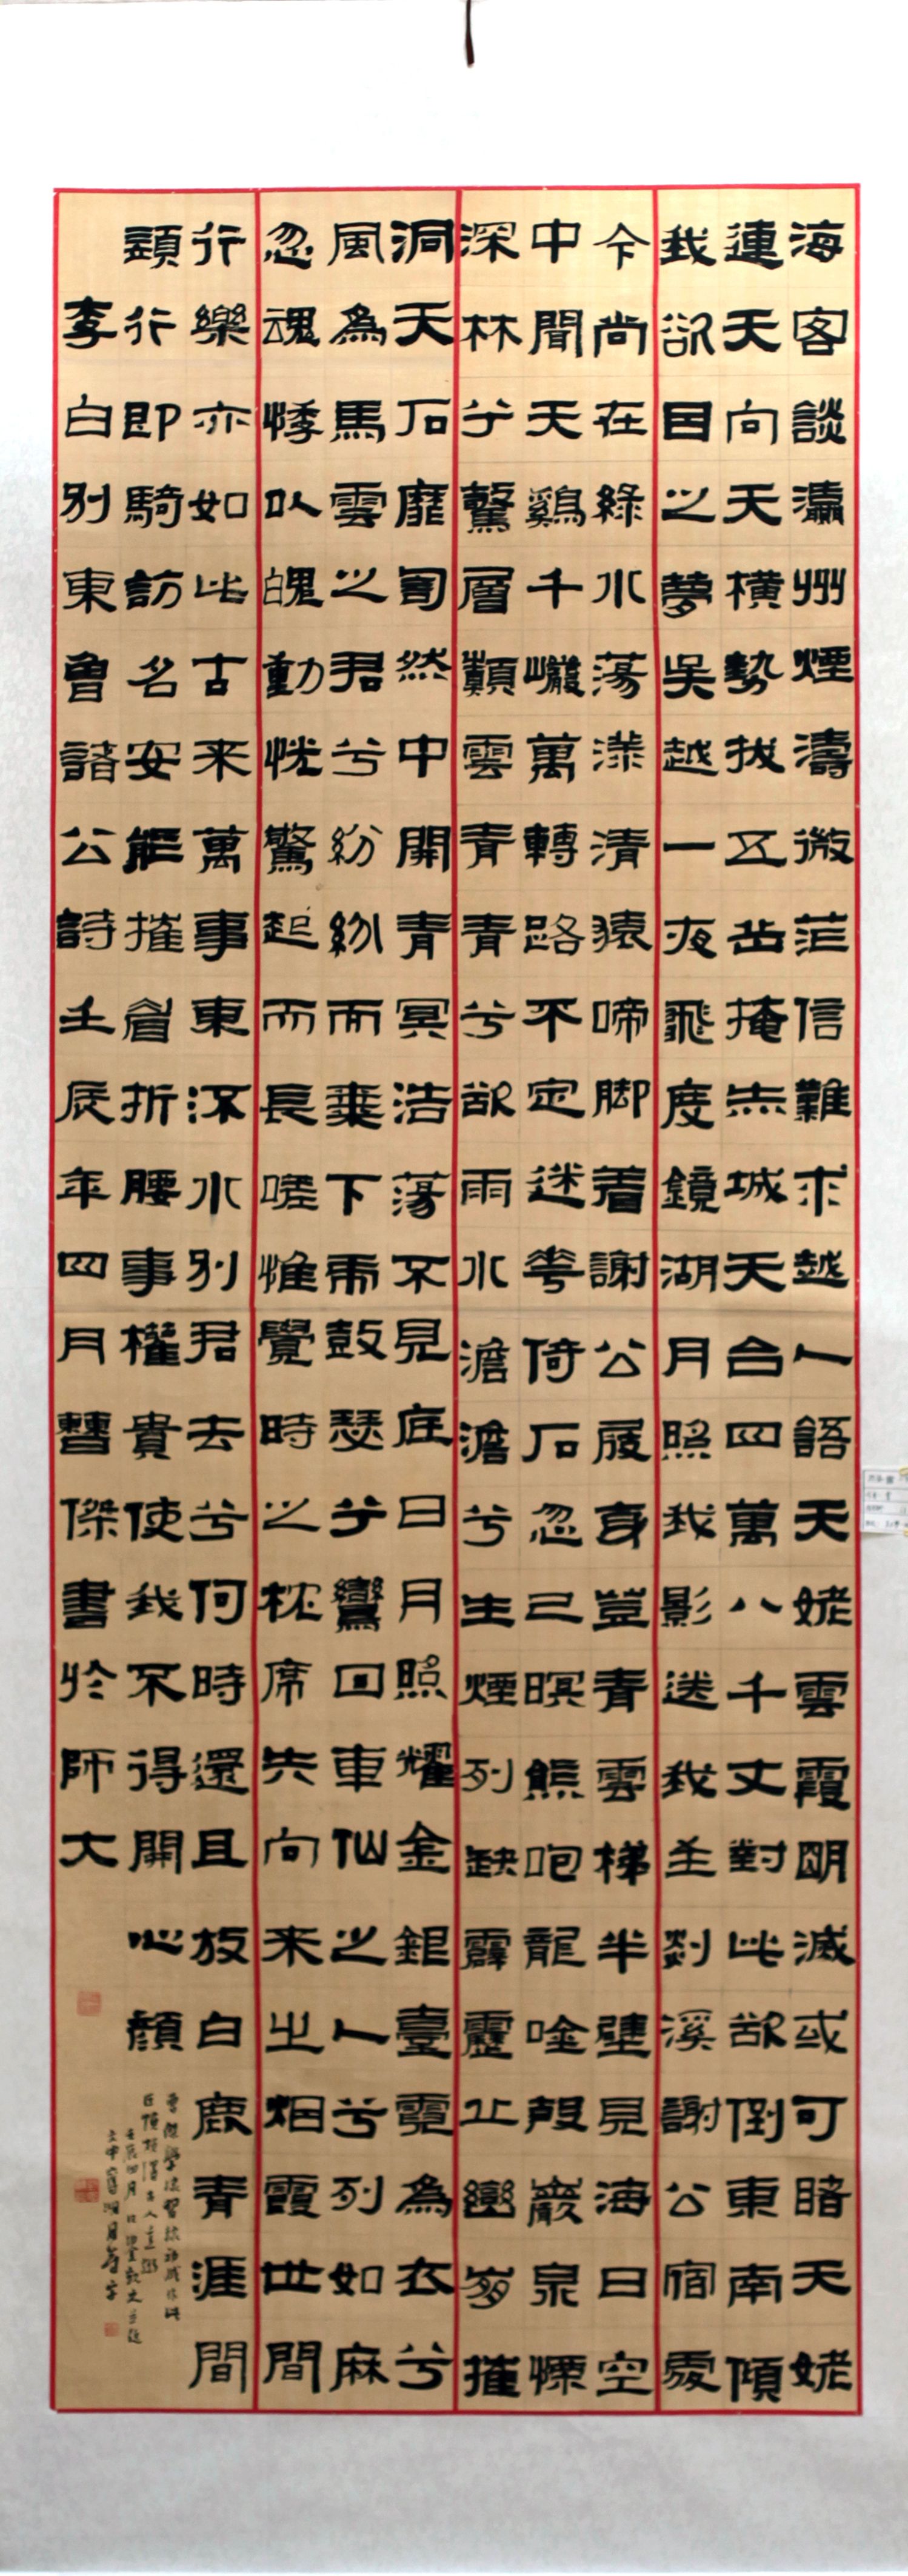 海客談瀛州煙濤微茫信難求越人語天姥雲霞明滅或可睹天姥
連天向天橫勢拔五岳掩赤城天台四萬八千丈對此欲倒東南傾
我欲因之夢吳越一夜飛度鏡湖月照我影送我至剡溪謝公宿處
今尚在綠水蕩漾清猿啼脚着謝公屐身豈青雲梯半壁見海日空
中聞天鷄千巖萬轉路不定迷花倚石忽已暝熊咆龍唫殷巖泉慄
深林兮驚層巔雲青青兮欲雨水澹澹兮生煙列缺霹靂丘巒崩摧
洞天石扉訇然中開青冥浩蕩不見底日月照耀金銀臺霓為衣兮
風為馬雲之君兮紛紛而來下虎鼓瑟兮鸞回車仙之人兮列如麻
忽魂悸以魄動恍驚起而長嗟惟覺時之枕席失向来之烟霞世間
行樂亦如此古来萬事東流水別君去兮何時還且放白鹿青涯間
須行即騎訪名安能摧眉折腰事權貴使我不得開心顏
李白別東魯諸公詩壬辰年四月曹傑書於師大